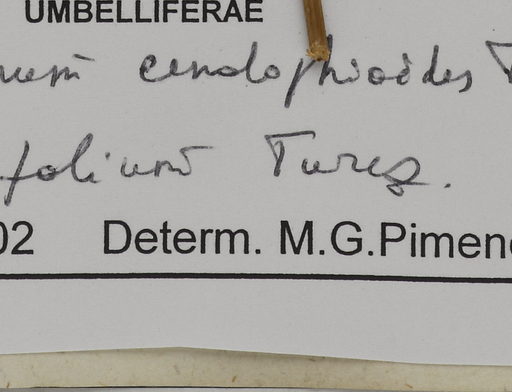 UMBELLIFERAE
num cenolophioides T
folium Turcz.
02 Determ. M.G.Pimeno